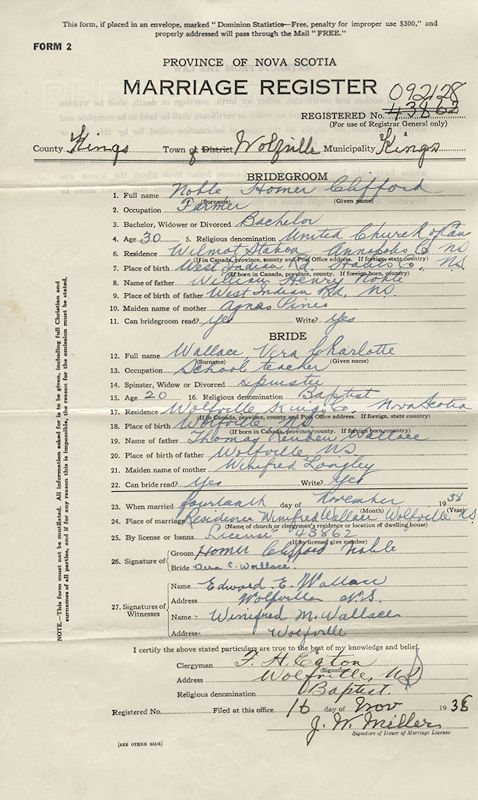 This form, if placed in an envelope, marked "Dominion Statistics—Free, penalty for improper use $300," and
properly addressed will pass through the Mail "FREE."
FORM 2
PROVINCE OF NOVA SCOTIA
MARRIAGE REGISTER
092128
REGISTERED No. 43862
(For use of Registrar General only)
County Kings Town of District Wolfville Municipality Kings
BRIDEGROOM
1. Full name Noble Homer Clifford
(Surname) (Given name)
2. Occupation Farmer
3. Bachelor, Widower or Divorced Bachelor
4. Age 30 5. Religious denomination United Church of Can
6. Residence Wilmot Station Annapolis Co NS
(If in Canada, province, county and Post Office address. If foreign, state country)
7. Place of birth West Indian Rd, Hants Co, N.S.
(If born in Canada, province, county. If foreign born, country)
8. Name of father William Henry Noble
9. Place of birth of father West Indian Rd, NS.
10. Maiden name of mother Agnes
11. Can bridegroom read? Yes Write? Yes
BRIDE
12. Full name Wallace, Vera Charlotte
(Surname) (Given name)
13. Occupation School teacher
14. Spinster, Widow or Divorced Spinster
15. Age 20 16. Religious denomination Baptist
17. Residence Wolfville Kings Co Nova Scotia
(If in Canada, province, county and Post Office address. If foreign, state country)
18. Place of birth Wolfville NS
(If born in Canada, province, county. If foreign born, country)
19. Name of father Thomas Reuben Wallace
20. Place of birth of father Wolfville NS
21. Maiden name of mother Winifred Langley
22. Can bride read? Yes Write? Yes
23. When married fourteenth day of November 1938
(Month) (Year)
24. Place of marriage Residence Winifred Wallace Wolfville N.S.
(Name of church or clergyman's residence or location of dwelling house)
25. By license or banns License 43862
(If by license give number)
26. Signature of
Groom Homer Clifford Noble
Bride Vera C. Wallace.
27. Signatures of Witnesses
Name Edward E. Wallace
Address Wolfville N.S.
Name Winifred M. Wallace
Address Wolfville
I certify the above stated particulars are true to the best of my knowledge and belief.
Clergyman F. H. Eaton
(Signature)
Address Wolfville, NS
Religious denomination Baptist.
Registered No. Filed at this office 16 day of Nov 1938
J. W. Miller
Signature of Issuer of Marriage License
[SEE OTHER SIDE]
NOTE.—This form must not be mutilated. All information asked for is to be given, including full Christian and
surnames of all parties, and if for any reason this is impossible, the reason for the omission must be stated.